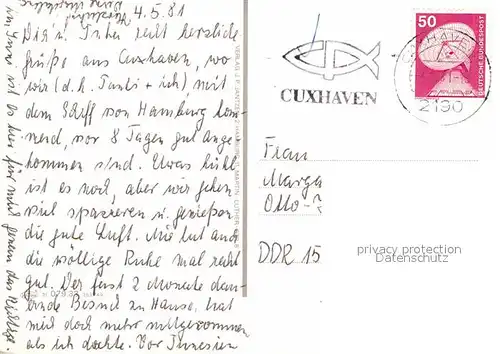 4.5.81
Dir u. Peter seit herzliche
Grüße aus Cuxhaven, wo
wir (d.h. Tantis + ich) mit
dem Schiff von Hamburg kom-
mend, vor 8 Tagen gut ange-
kommen sind. Etwas kühl
ist es noch, aber wir gehen
viel spazieren u. genießen
die gute Luft. Mir tut auch
die völlige Ruhe mal recht
gut. Der fast 2 Monate dau-
ernde Besuch zu Hause, hat
mich doch mehr mitgenommen
als ich dachte. Vor Tunesien
im Juni ist es hier für mich genau das Richtige.
CUXHAVEN
2190
50
DEUTSCHE BUNDESPOST
Frau
Marga
Otto-?
DDR 15
privacy protection
VermittlerWolf